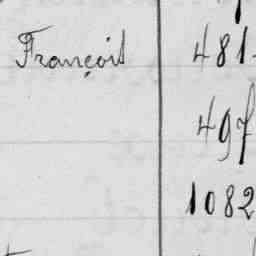 François 481
497
1082